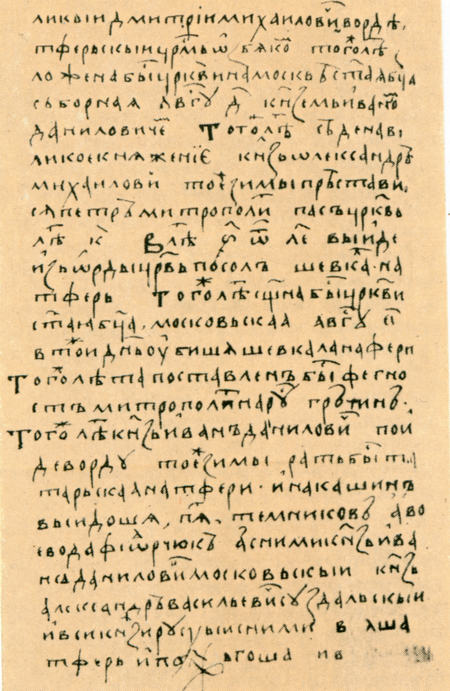 ликыи дмитрїи михаиловⷱ҇ ворде
тферьскыи ц҃рмъ ѡзбякоⷨ тогоⷤ лѣ
ложена быⷭ҇ црк҃ви на москвѣ ст҃аꙗ бц҃а
съборная авгⷭ҇у д҃ кн҃земь иваноⷨ
даниловичеⷨ Тогоⷤ лѣⷮ сѣде на ве
ликое княженїе кн҃зь ѡлександръ
михаиловиⷱ҇ тоеⷤ зимы прѣстави
ся петръ митрополиⷮ пасъ церквь
лѣⷮ к҃ Влѣⷮ выиде
изь ѡрды ѿ црѧ посолъ шевкаⷧ на
тферь Тогоⷤ лѣⷮ сщ҃на быⷭ҇ црк҃ви
ст҃аꙗ бц҃а московьская авгⷭ҇у
втоиⷤ дн҃ь оубишя шевкала на фери
Тогоⷤ лѣта поставленъ быⷭ҇ фегно
стъ митрополиⷮ на русⷭ҇ гречинъ
Тогоⷤ лѣⷮ кн҃зь иванъ даниловиⷱ҇ пои
де ворду тоеⷤ зимы рать быⷭ҇ та
тарьская на тфери и на кашинѣ
выидошя темниковъ а во
евода феѡрчюкъ а с ними кн҃зь ива
нъ даниловиⷱ҇ московьскыи кн҃зь
александръ васильевиⷱ҇ суздальскыи
и вси кн҃зи русⷭ҇ыи с ними взяша
тферь и пожьгоша и в